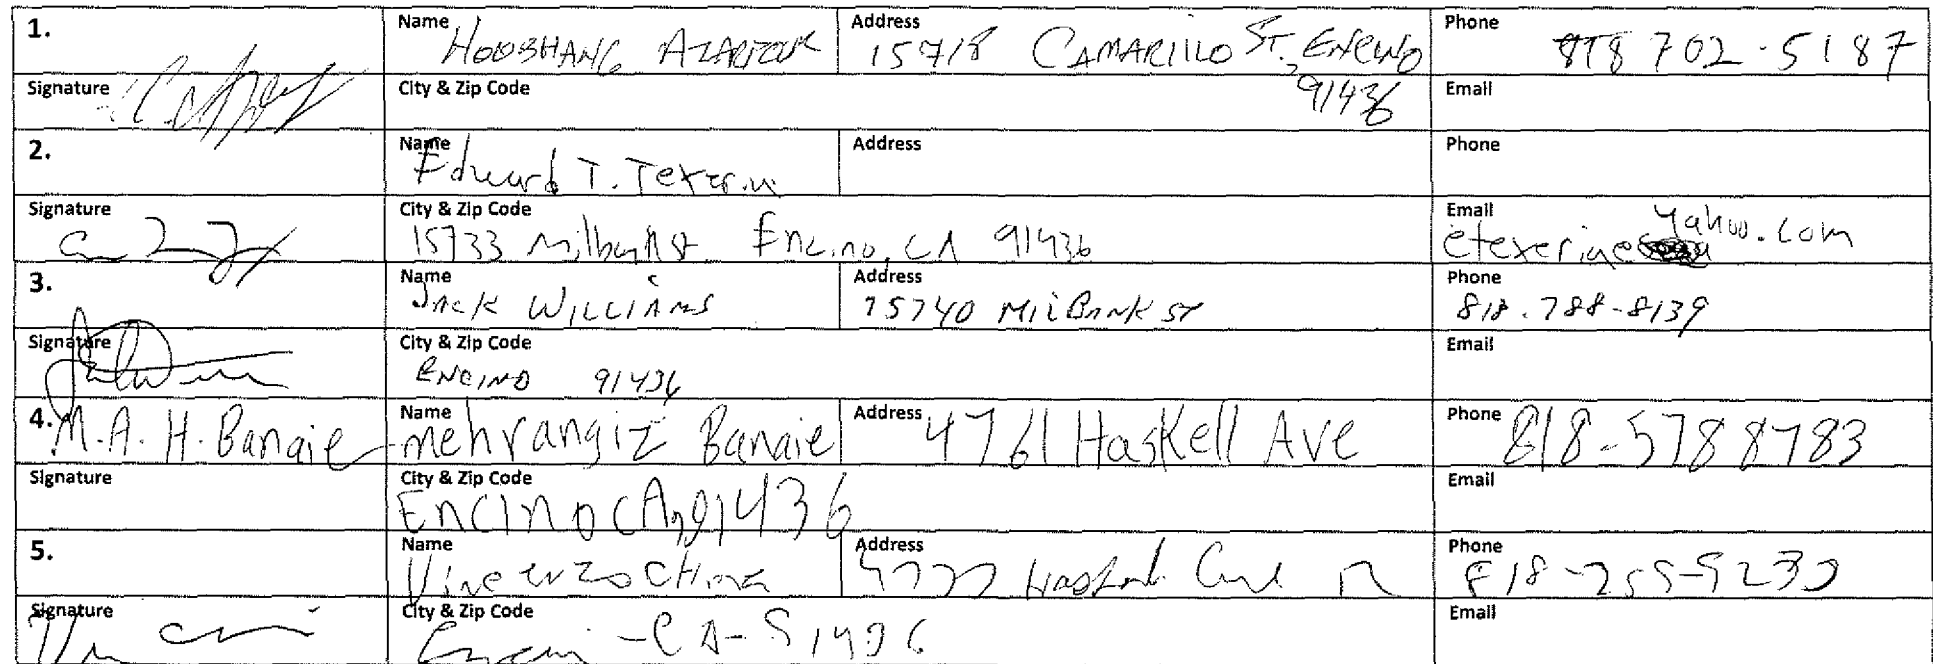 1. Name HOOSHANG Address 15718 CAMARILLO ST., ENCINO Phone 818 702-5187
Signature City & Zip Code 91436 Email
2. Name Edward T. Texerin Address Phone
Signature City & Zip Code 15733 Milbank St Encino, CA 91436 Email etexerine yahoo.com
3. Name JACK WILLIAMS Address 15740 MilBANK ST Phone 818.788-8139
Signature City & Zip Code ENCINO 91436 Email
4. M.A.H. Banaie Name mehrangiz Banaie Address 4761 Haskell Ave Phone 818-5788783
Signature City & Zip Code ENCINO CA, 91436 Email
5. Name Vincenzo China Address Phone
Signature City & Zip Code -CA-91436 Email